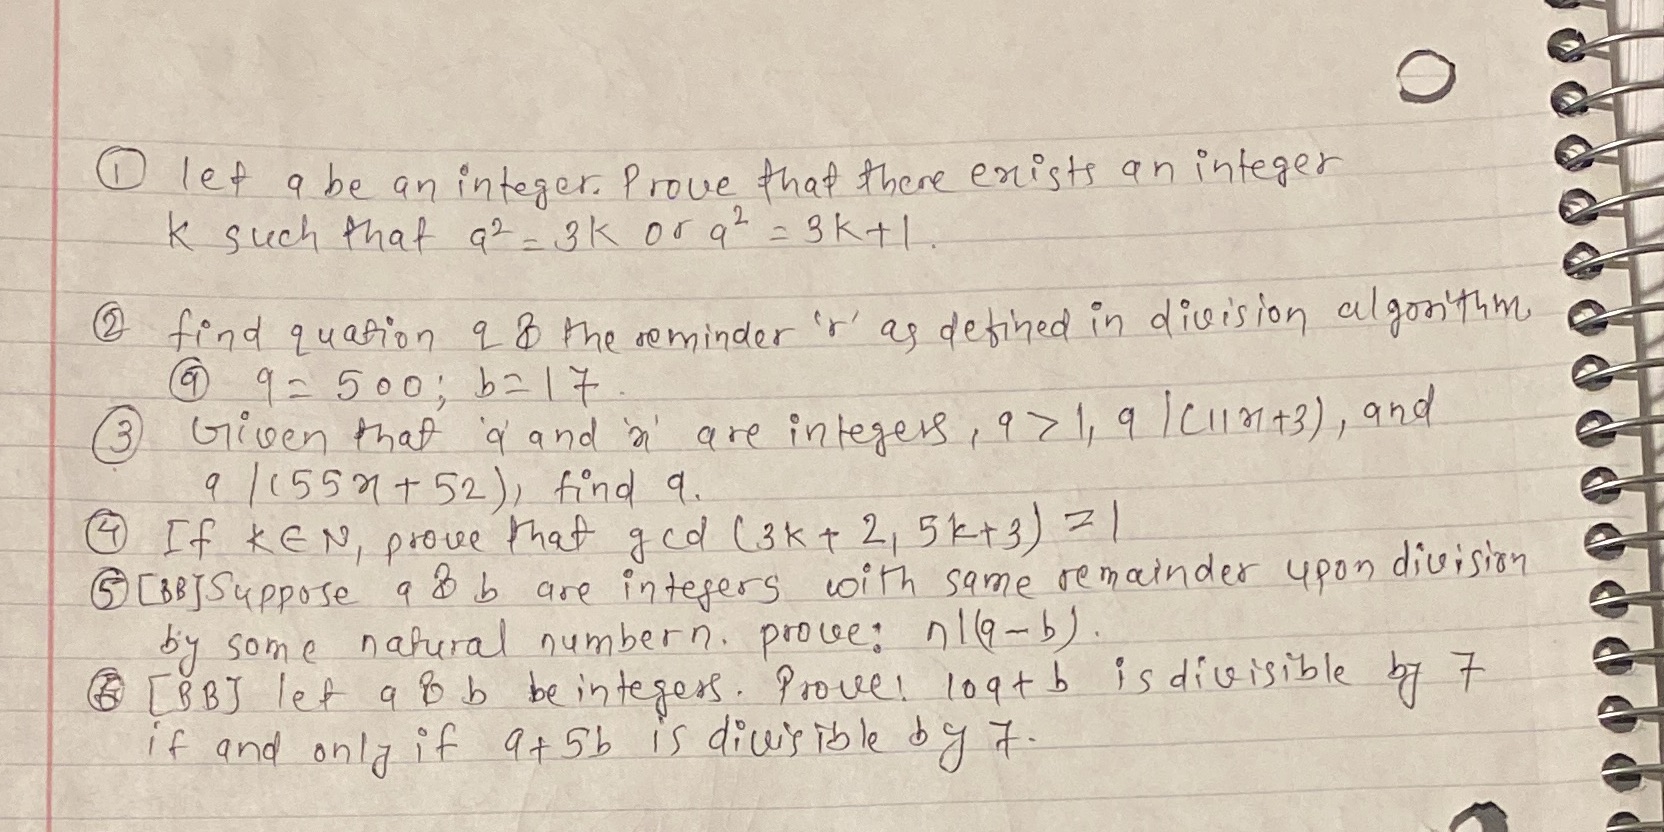 ① let a be an integer. Prove that there exists an integer
k such that a² = 3k or a² = 3k+1.
② find quation q & the reminder 'r' as defined in division algorithm
ⓐ a = 500; b = 17.
③ Given that 'a' and 'x' are integers, a > 1, a | (11x+3), and
a | (55x + 52), find a.
④ If k ∈ N, prove that gcd (3k + 2, 5k+3) = 1
⑤ [BB] Suppose a & b are integers with same remainder upon division
by some natural number n. prove: n|(a-b).
⑥ [BB] let a & b be integers. Prove: 10a + b is divisible by 7
if and only if a + 5b is divisible by 7.